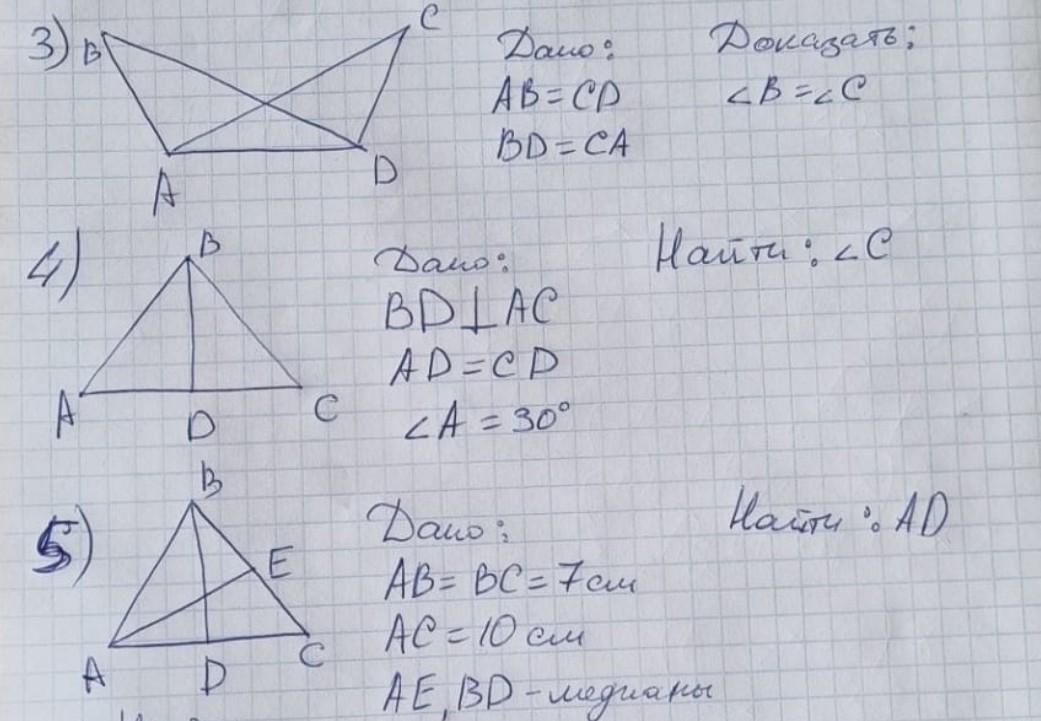 3) B C Дано: Доказать:
AB = CD ∠B = ∠C
BD = CA
A D
4) B Дано: Найти: ∠C
BD ⊥ AC
AD = CD
A D C ∠A = 30°
5) B Дано: Найти: AD
E AB = BC = 7 см
A D C AC = 10 см
AE, BD - медианы